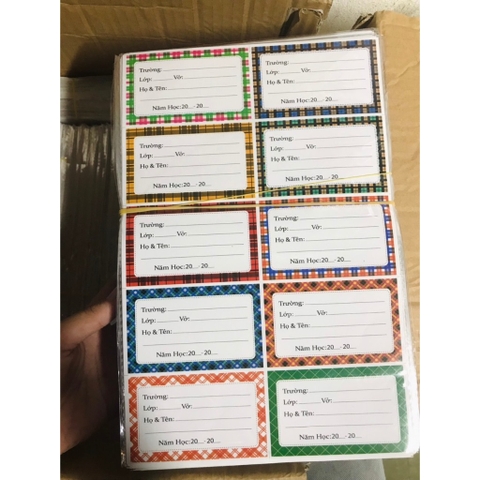 Trường:
Lớp: Vở:
Họ & Tên:
Năm Học:20...-20...
Trường:
Lớp: Vở:
Họ & Tên:
Năm Học:20...-20...
Trường:
Lớp: Vở:
Họ & Tên:
Năm Học:20...-20...
Trường:
Lớp: Vở:
Họ & Tên:
Năm Học:20...-20...
Trường:
Lớp: Vở:
Họ & Tên:
Năm Học:20...-20...
Trường:
Lớp: Vở:
Họ & Tên:
Năm Học:20...-20...
Trường:
Lớp: Vở:
Họ & Tên:
Năm Học:20...-20...
Trường:
Lớp: Vở:
Họ & Tên:
Năm Học:20...-20...
Trường:
Lớp: Vở:
Họ & Tên:
Năm Học:20...-20...
Trường:
Lớp: Vở:
Họ & Tên:
Năm Học:20...-20...